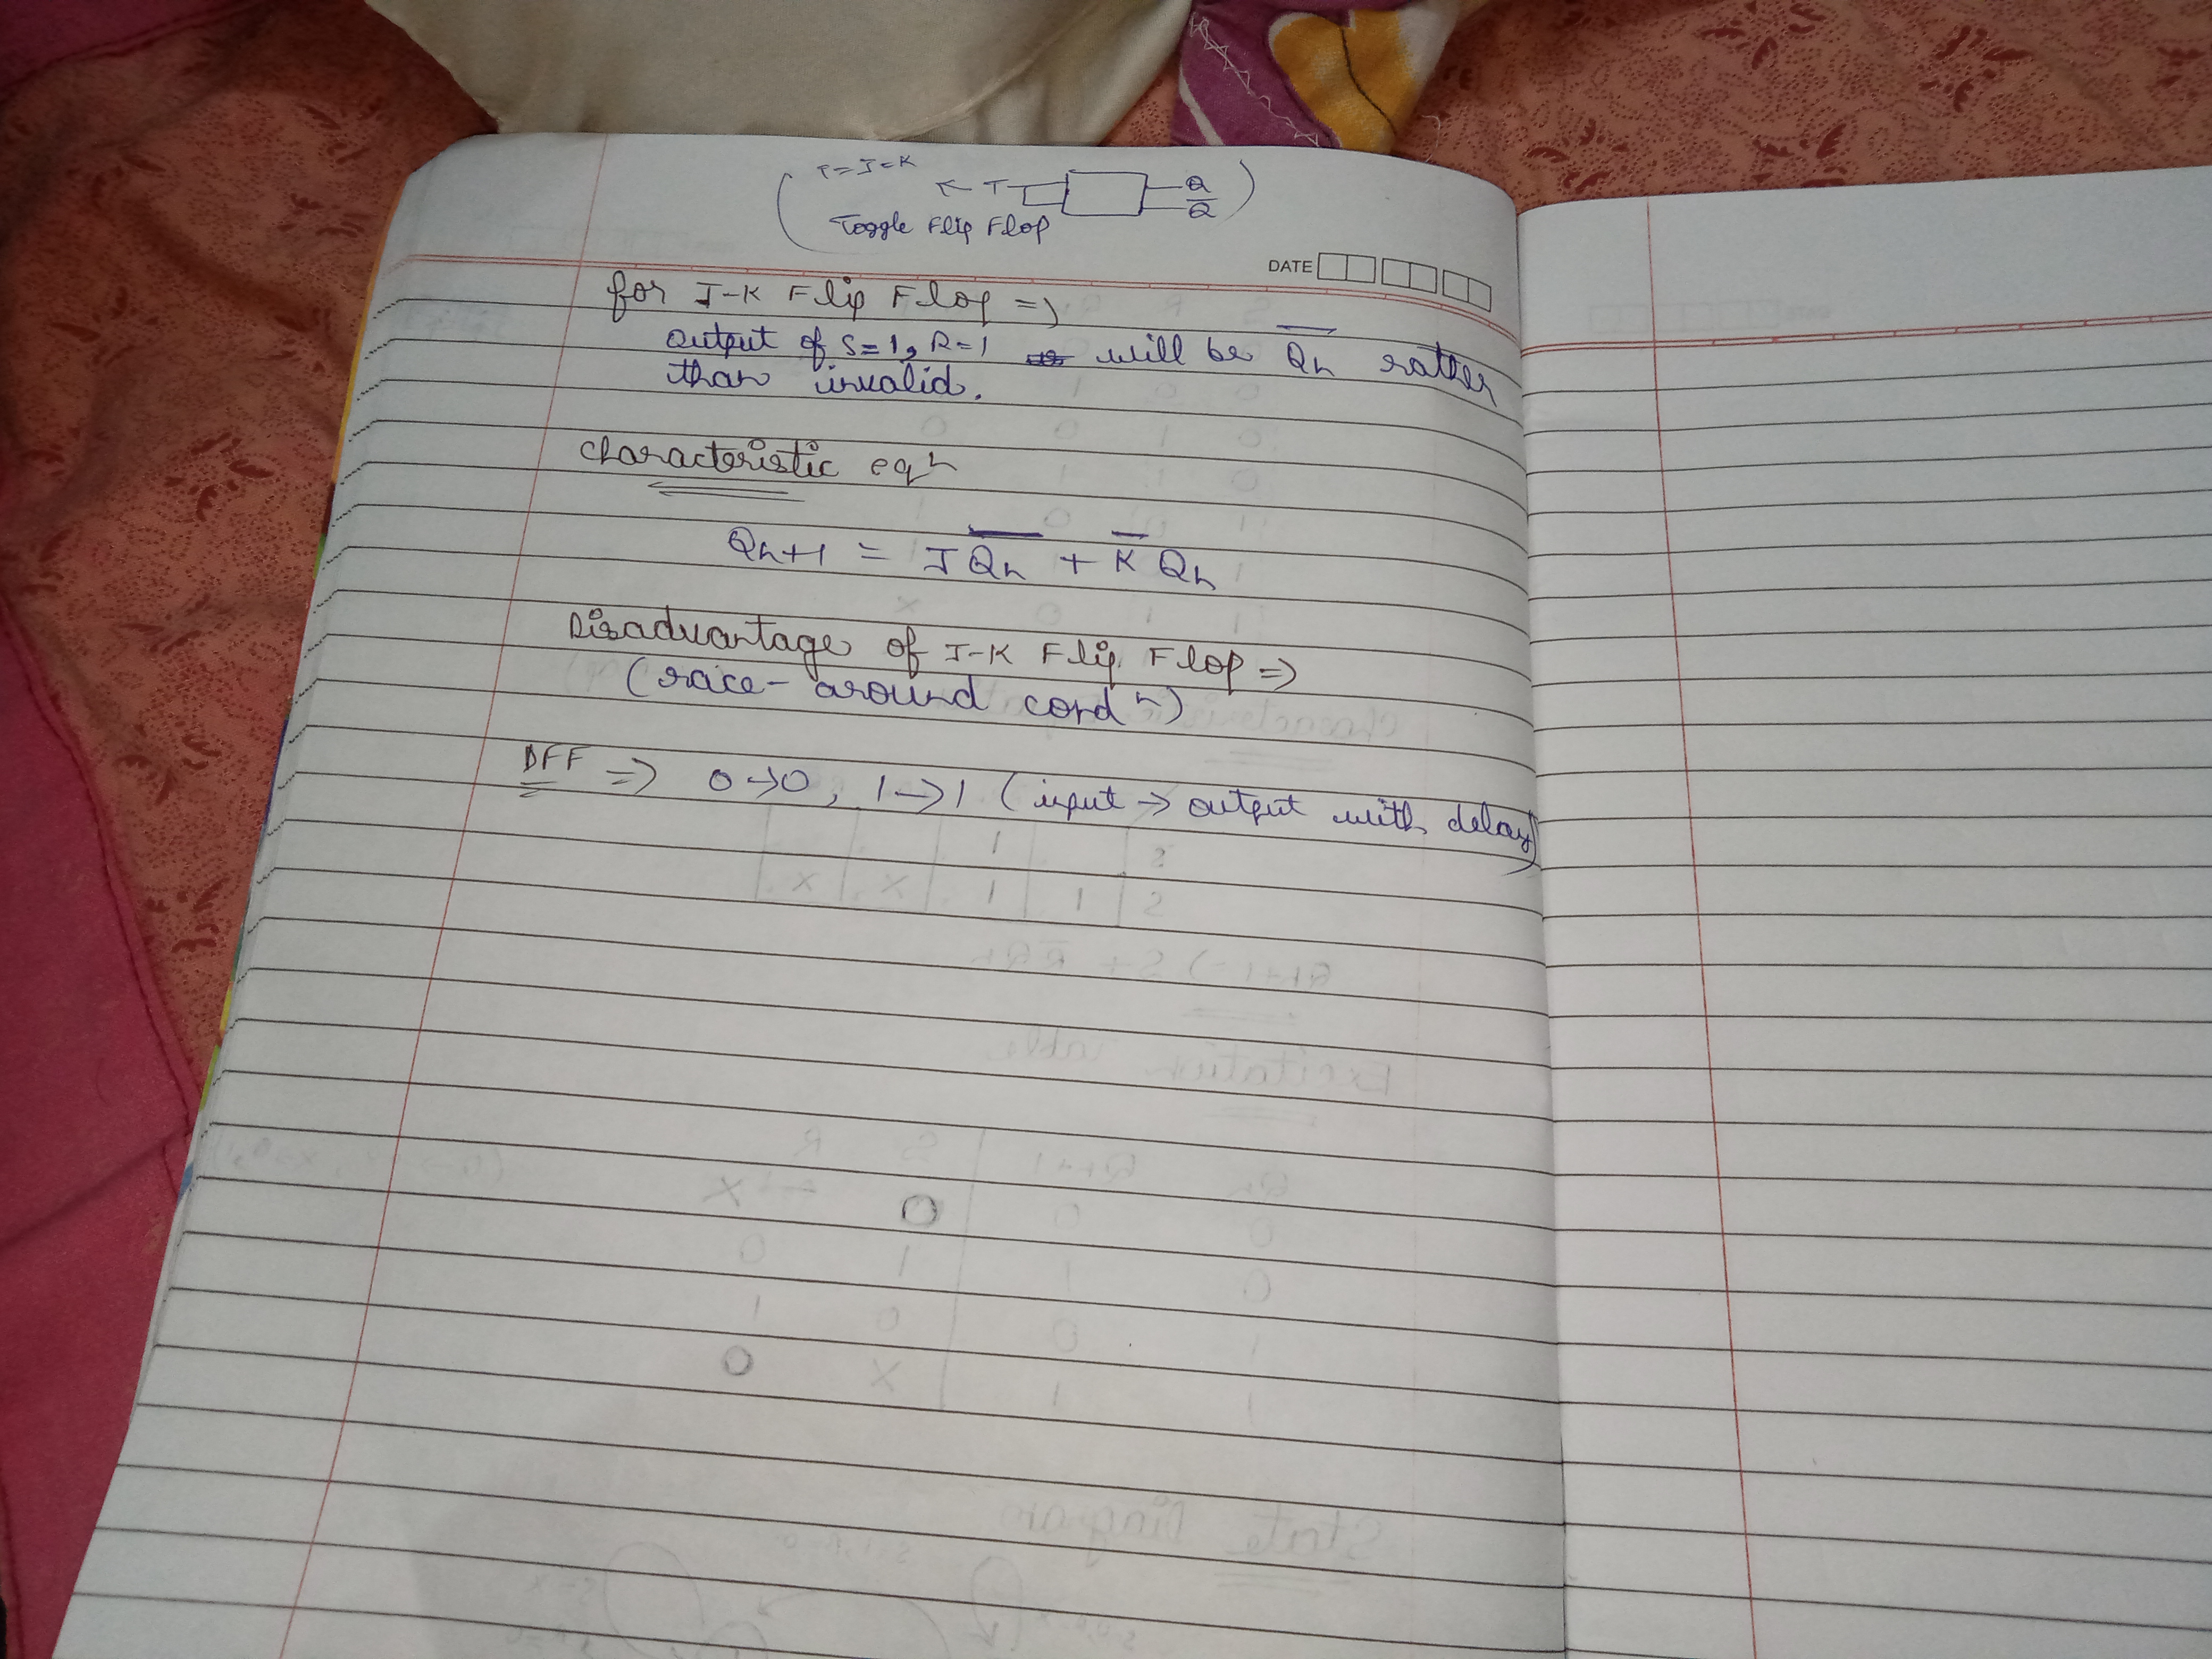 T=J=K
← T Q
Q̅
Toggle Flip Flop
DATE
for J-K Flip Flop =>
Output of S=1, R=1 will be Q̅n rather
than invalid.
Characteristic eqn
Qn+1 = JQ̅n + K̅Qn
Disadvantage of J-K Flip Flop =>
(race-around condn)
DFF => 0→0, 1→1 (input → output with delay)